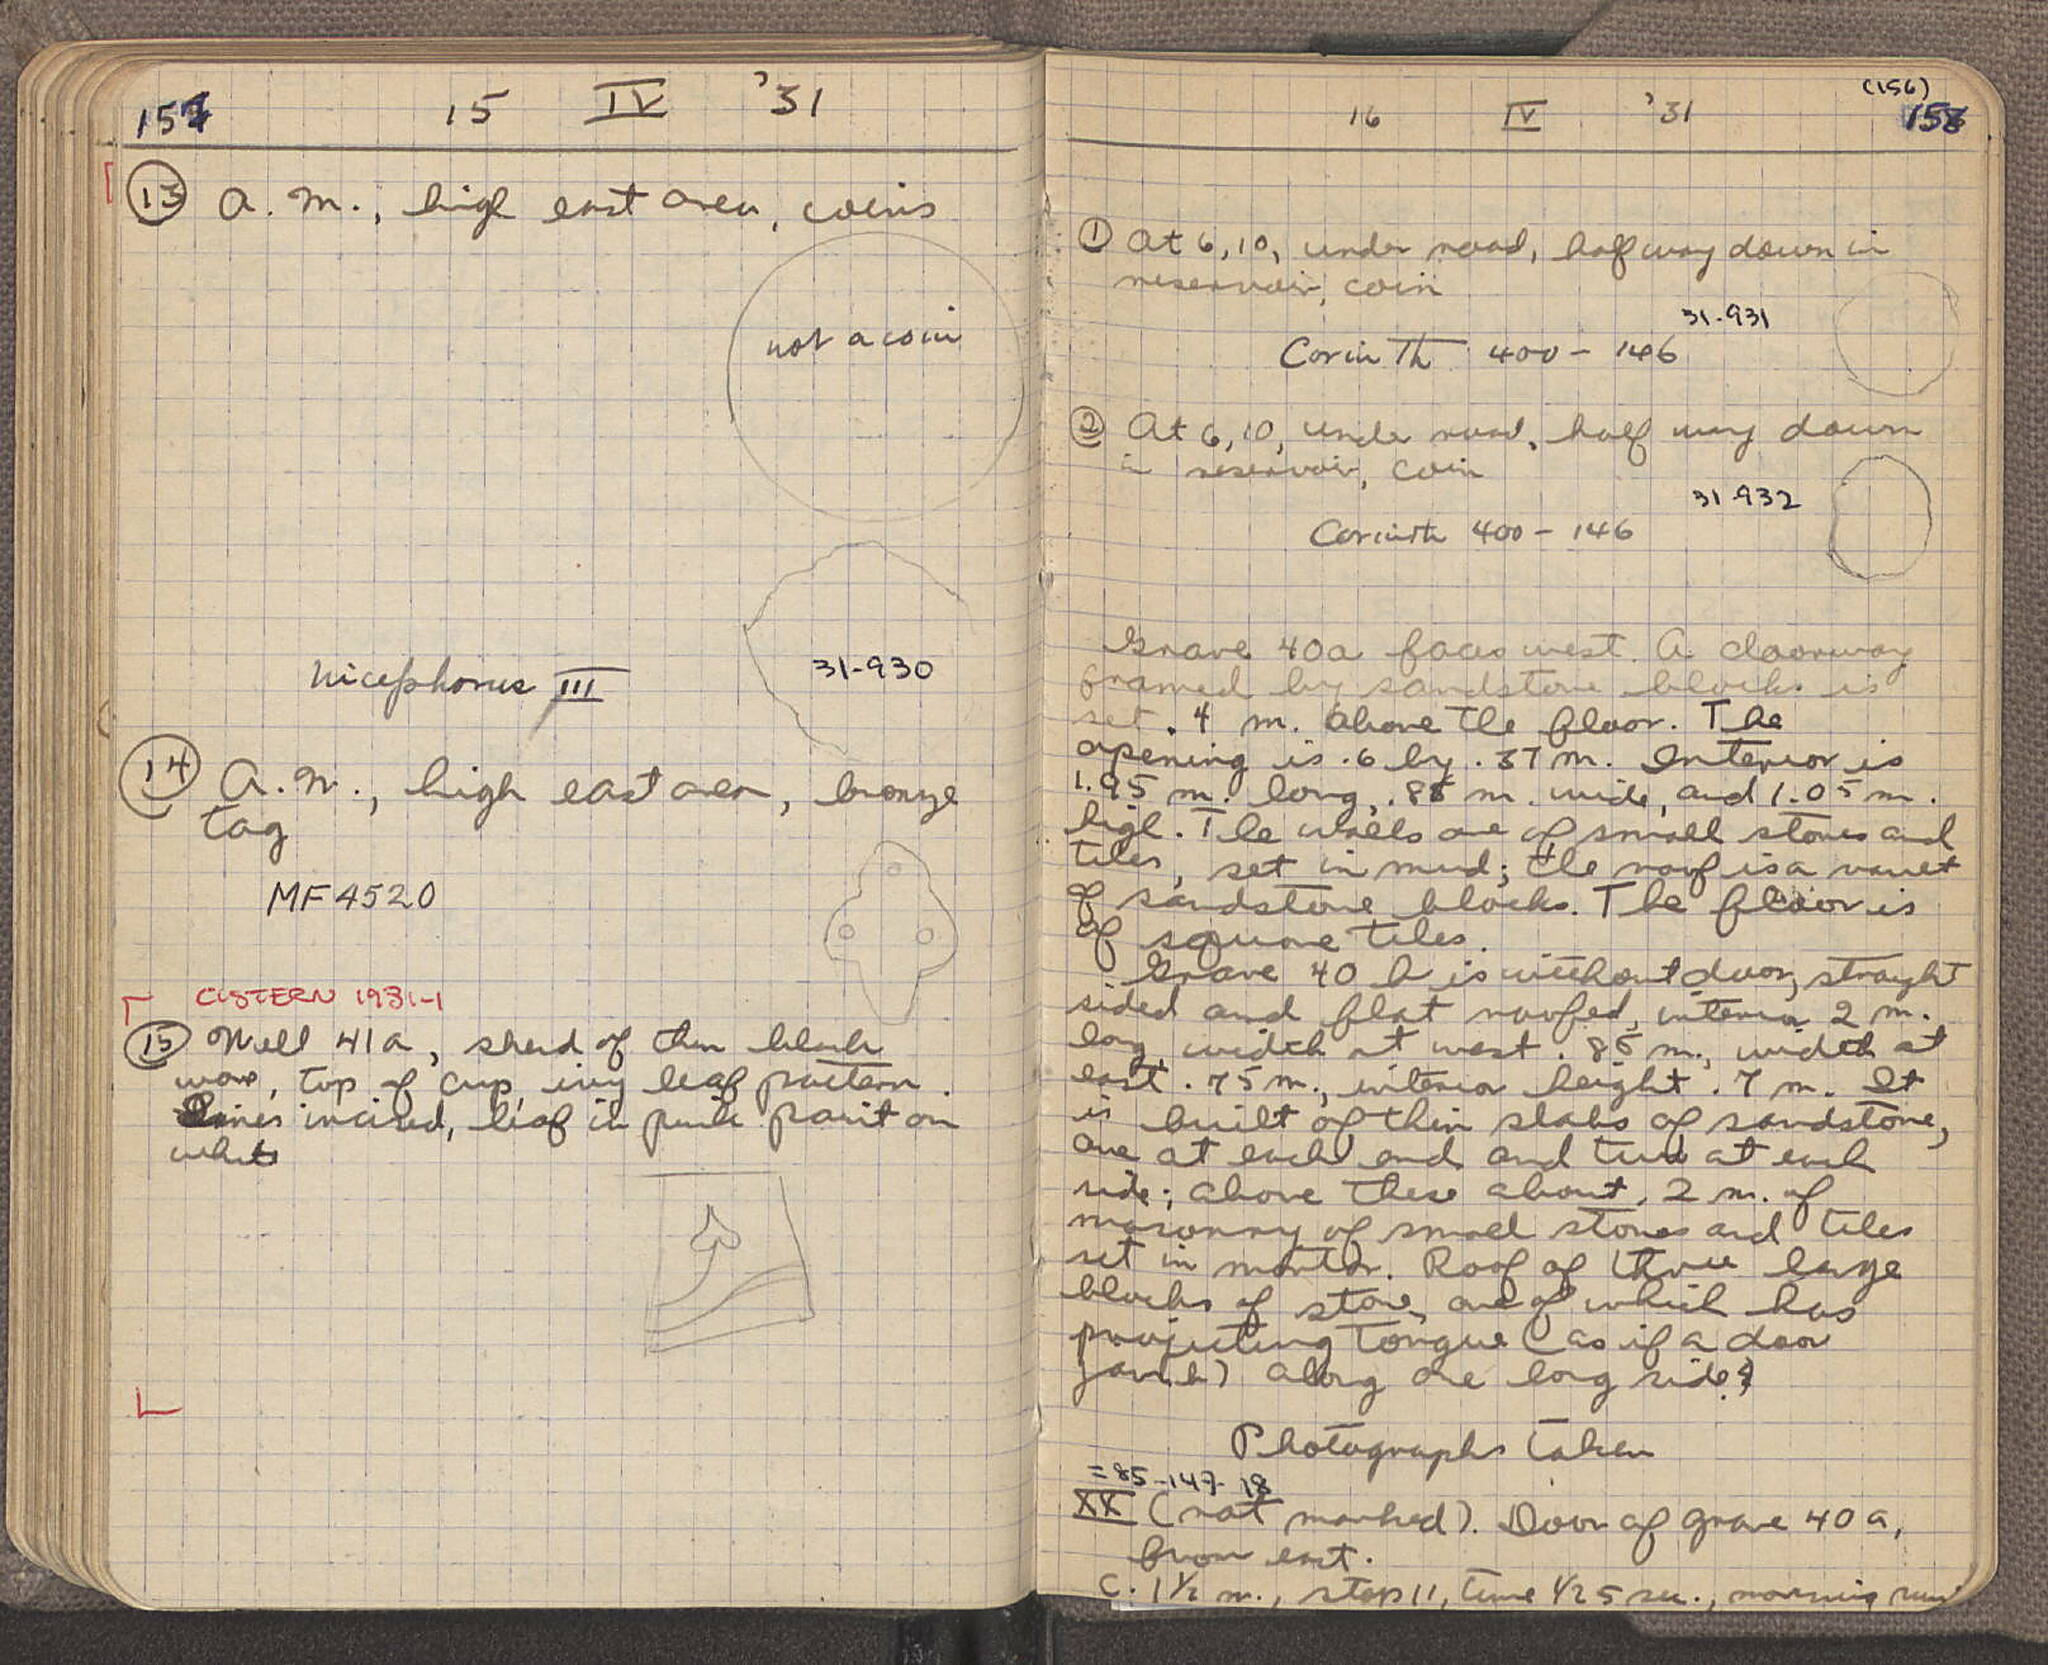 15 IV '31
13 A.M., high east area, coins
not a coin
Nicephorus III
31-930
14 A.M., high east area, bronze
tag
MF 4520
CISTERN 1931-1
15 Well 41a, sherd of thin black
ware, top of cup, ivy leaf pattern.
Lines incised, leaf in pink paint on
white
(156)
16 IV '31
1 At 6,10, under road, halfway down in
reservoir, coin
31-931
Corinth 400-146
2 At 6,10, under road, half way down
in reservoir, coin
31-932
Corinth 400-146
Grave 40a faces west. A doorway
framed by sandstone blocks is
set .4 m. above the floor. The
opening is .6 by .37 m. Interior is
1.95 m. long, .85 m. wide, and 1.05 m.
high. The walls are of small stones and
tiles, set in mud; the roof is a vault
of sandstone blocks. The floor is
of square tiles.
Grave 40 b is without door, straight
sided and flat roofed, interior 2 m.
long, width at west .85 m., width at
east .75 m., interior height .7 m. It
is built of thin slabs of sandstone,
one at each end and two at each
side; above these about .2 m. of
masonry of small stones and tiles
set in mortar. Roof of three large
blocks of stone, one of which has
projecting tongue (as if a door
jamb) along one long side.
Photographs taken
=85-147-18
XX (not marked). Door of grave 40a,
from east.
C. 1 1/2 m., stop 11, time 1/25 sec., morning sun